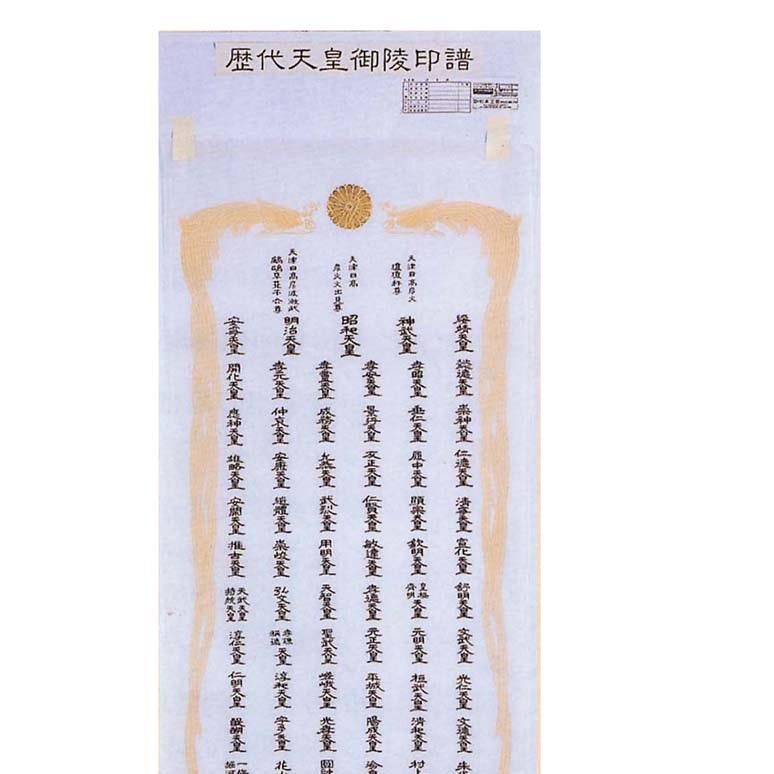 歴代天皇御陵印譜
天津日高彦火
瓊瓊杵尊
天津日高
彦火火出見尊
天津日高彦波瀲武
鸕鷀草葺不合尊
綏靖天皇
神武天皇
昭和天皇
明治天皇
安寧天皇
懿德天皇
孝昭天皇
孝安天皇
孝靈天皇
孝元天皇
開化天皇
崇神天皇
垂仁天皇
景行天皇
成務天皇
仲哀天皇
應神天皇
仁德天皇
履中天皇
反正天皇
允恭天皇
安康天皇
雄略天皇
清寧天皇
顯宗天皇
仁賢天皇
武烈天皇
繼體天皇
安閑天皇
宣化天皇
欽明天皇
敏達天皇
用明天皇
崇峻天皇
推古天皇
舒明天皇
皇極
齊明
天皇
孝德天皇
天智天皇
弘文天皇
天武天皇
持統天皇
文武天皇
元明天皇
元正天皇
聖武天皇
孝謙
稱德
天皇
淳仁天皇
光仁天皇
桓武天皇
平城天皇
嵯峨天皇
淳和天皇
仁明天皇
文德天皇
清和天皇
陽成天皇
光孝天皇
宇多天皇
醍醐天皇
村上